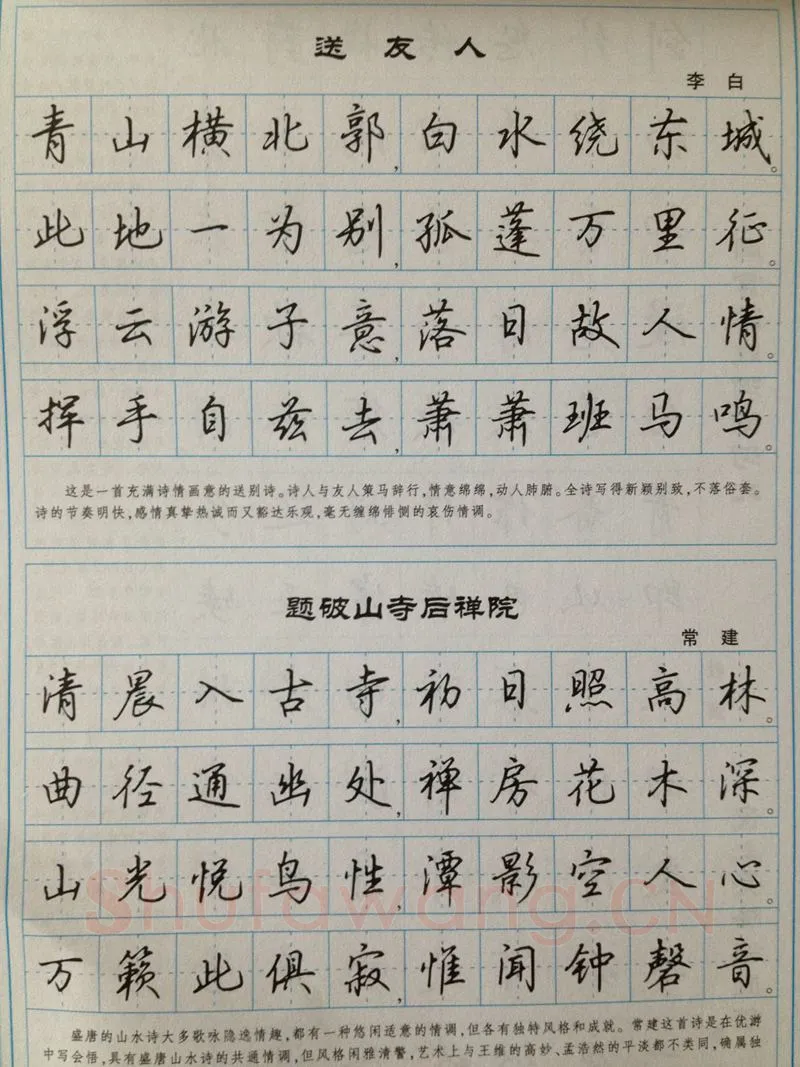 送友人
李白
青山横北郭,白水绕东城。
此地一为别,孤蓬万里征。
浮云游子意,落日故人情。
挥手自兹去,萧萧班马鸣。
这是一首充满诗情画意的送别诗。诗人与友人策马辞行,情意绵绵,动人肺腑。全诗写得新颖别致,不落俗套。
诗的节奏明快,感情真挚热诚而又豁达乐观,毫无缠绵悱恻的哀伤情调。
题破山寺后禅院
常建
清晨入古寺,初日照高林。
曲径通幽处,禅房花木深。
山光悦鸟性,潭影空人心。
Shufawang.CN
万籁此俱寂,惟闻钟磬音。
盛唐的山水诗大多歌咏隐逸情趣,都有一种悠闲适意的情调,但各有独特风格和成就。常建这首诗是在优游
中写会悟,具有盛唐山水诗的共通情调,但风格闲雅清警,艺术上与王维的高妙、孟浩然的平淡都不类同,确属独